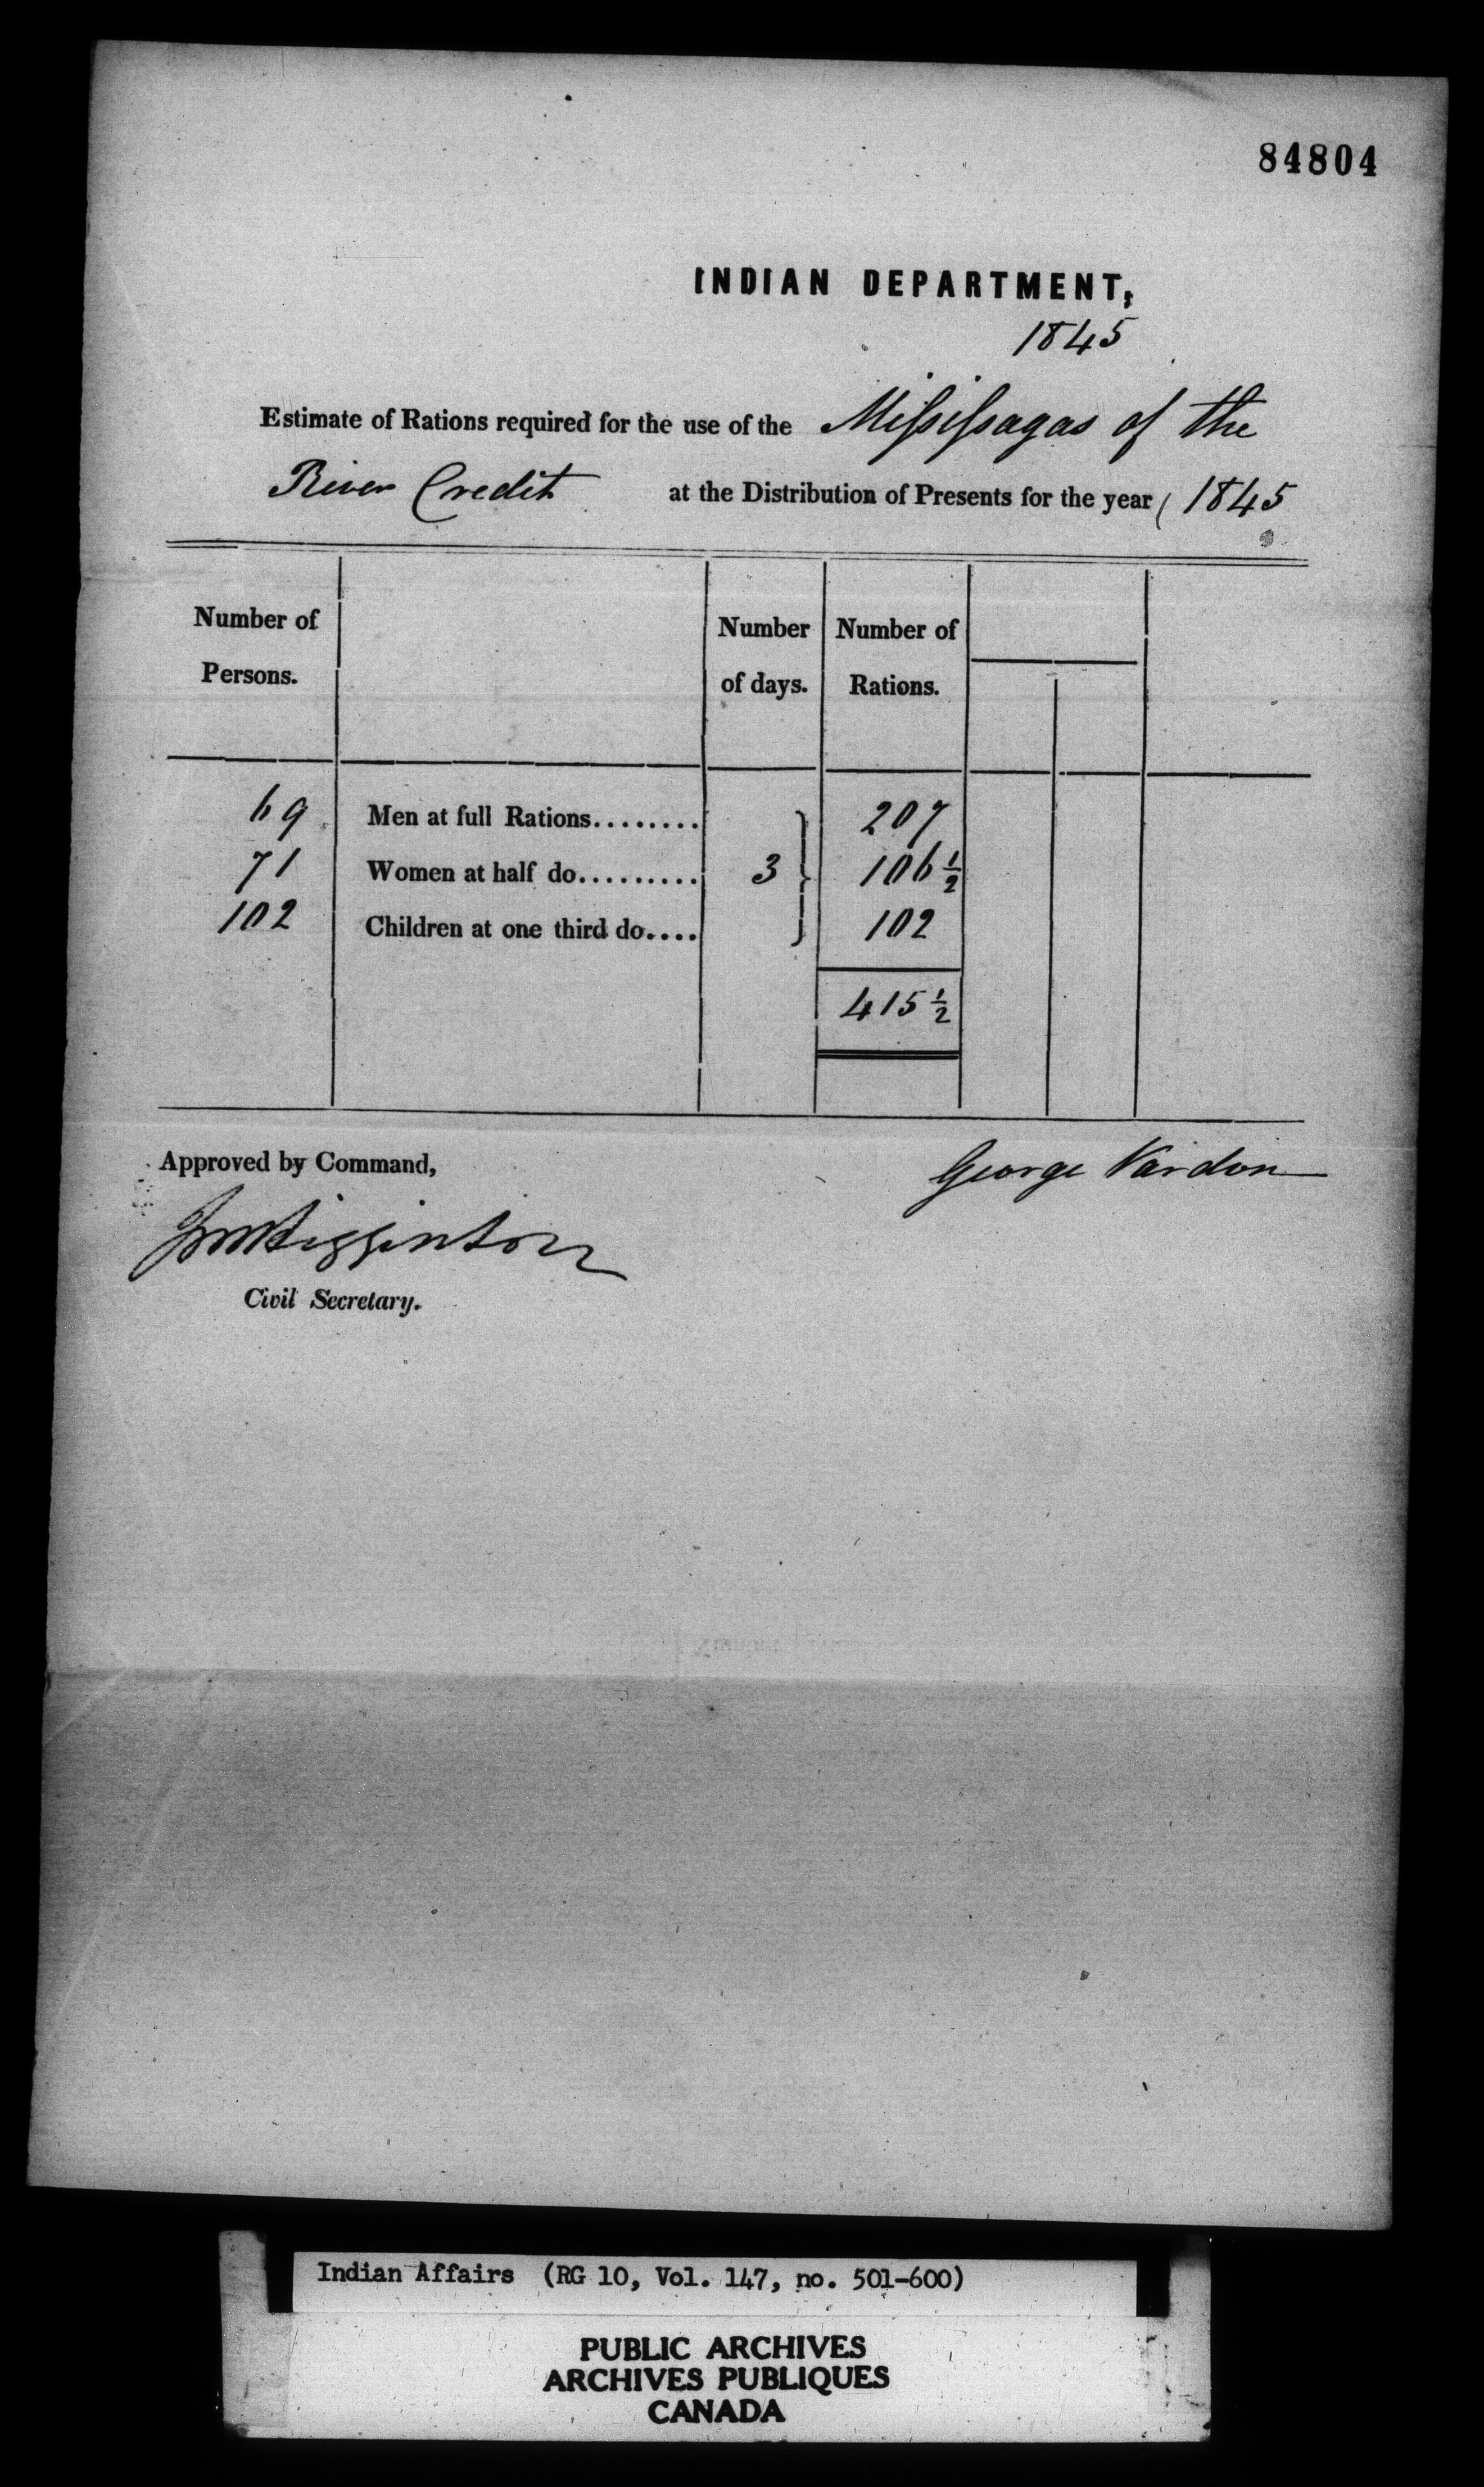 84804
INDIAN DEPARTMENT,
1845
Estimate of Rations required for the use of the Missisagas of the
River Credit at the Distribution of Presents for the year 1845
Number of Persons. Number of days. Number of Rations.
69 Men at full Rations........ 207
71 Women at half do......... 3 106 1/2
102 Children at one third do.... 102
415 1/2
Approved by Command, George Vardon
JM Higginton
Civil Secretary.
Indian Affairs (RG 10, Vol. 147, no. 501-600)
PUBLIC ARCHIVES
ARCHIVES PUBLIQUES
CANADA